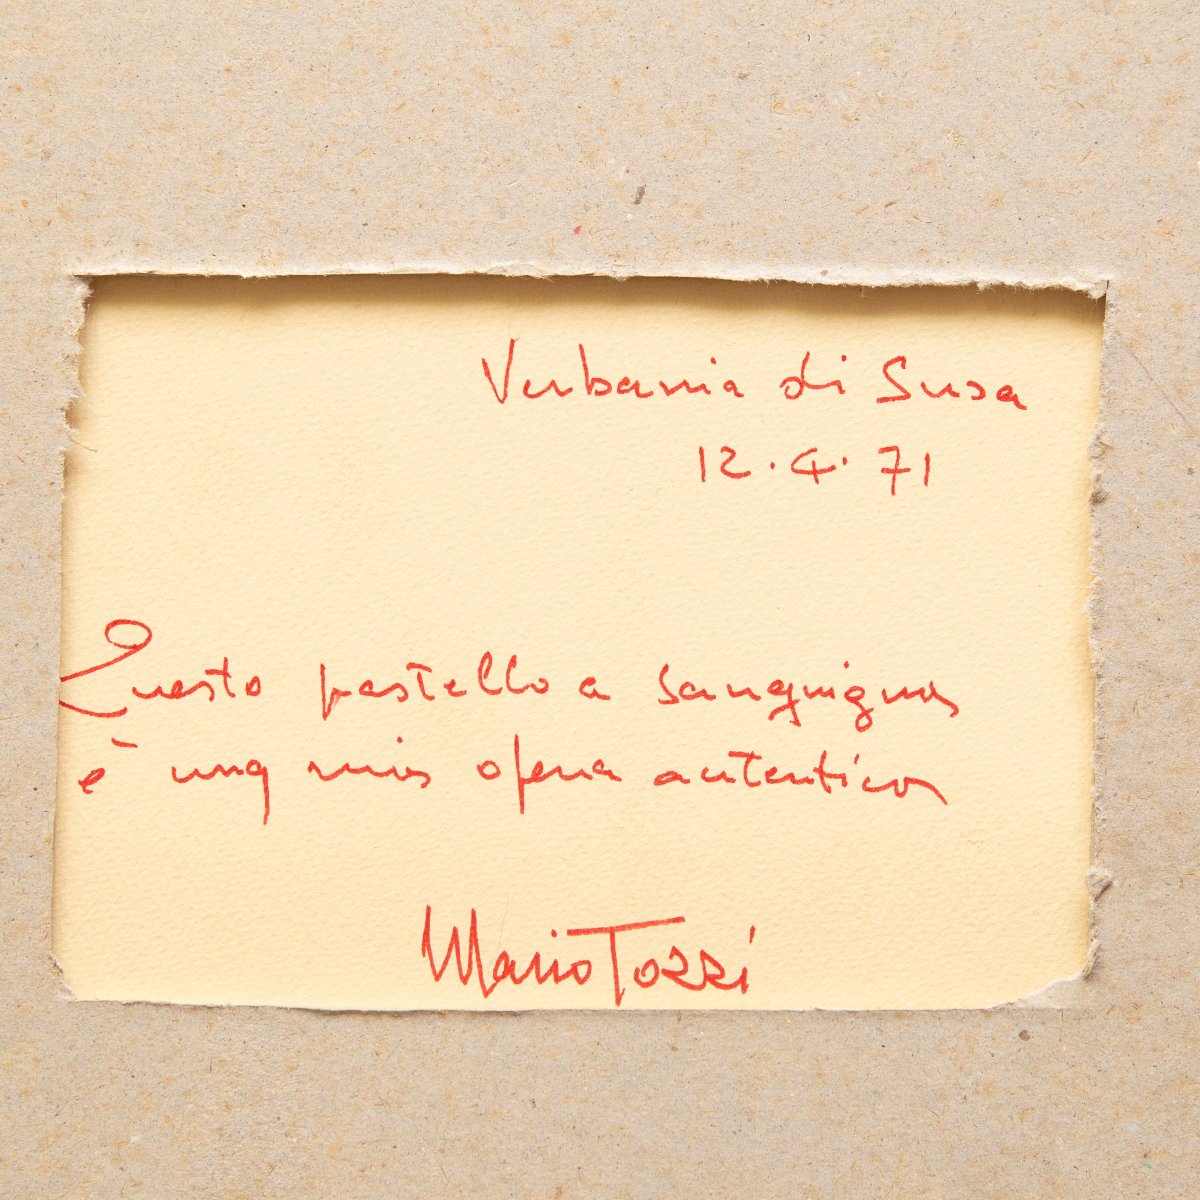 Verbania di Susa
12.4.71
Questo pastello a sanguigna
è una mia opera autentica
Mario Tozzi